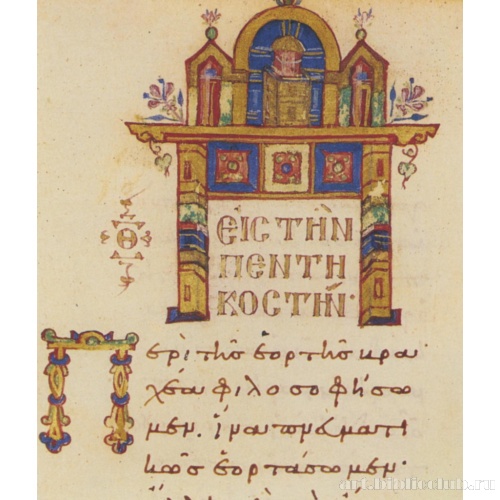 Θ
ΕἸС ΤῊΝ
ΠΕΝΤΗ
ΚΟСΤΉΝ·
Περὶ τῆς ἑορτῆς βρα
χέα φιλοσοφήσω
μεν. ἵνα πνευματι
κῶς ἑορτάσωμεν·
art.biblioclub.ru